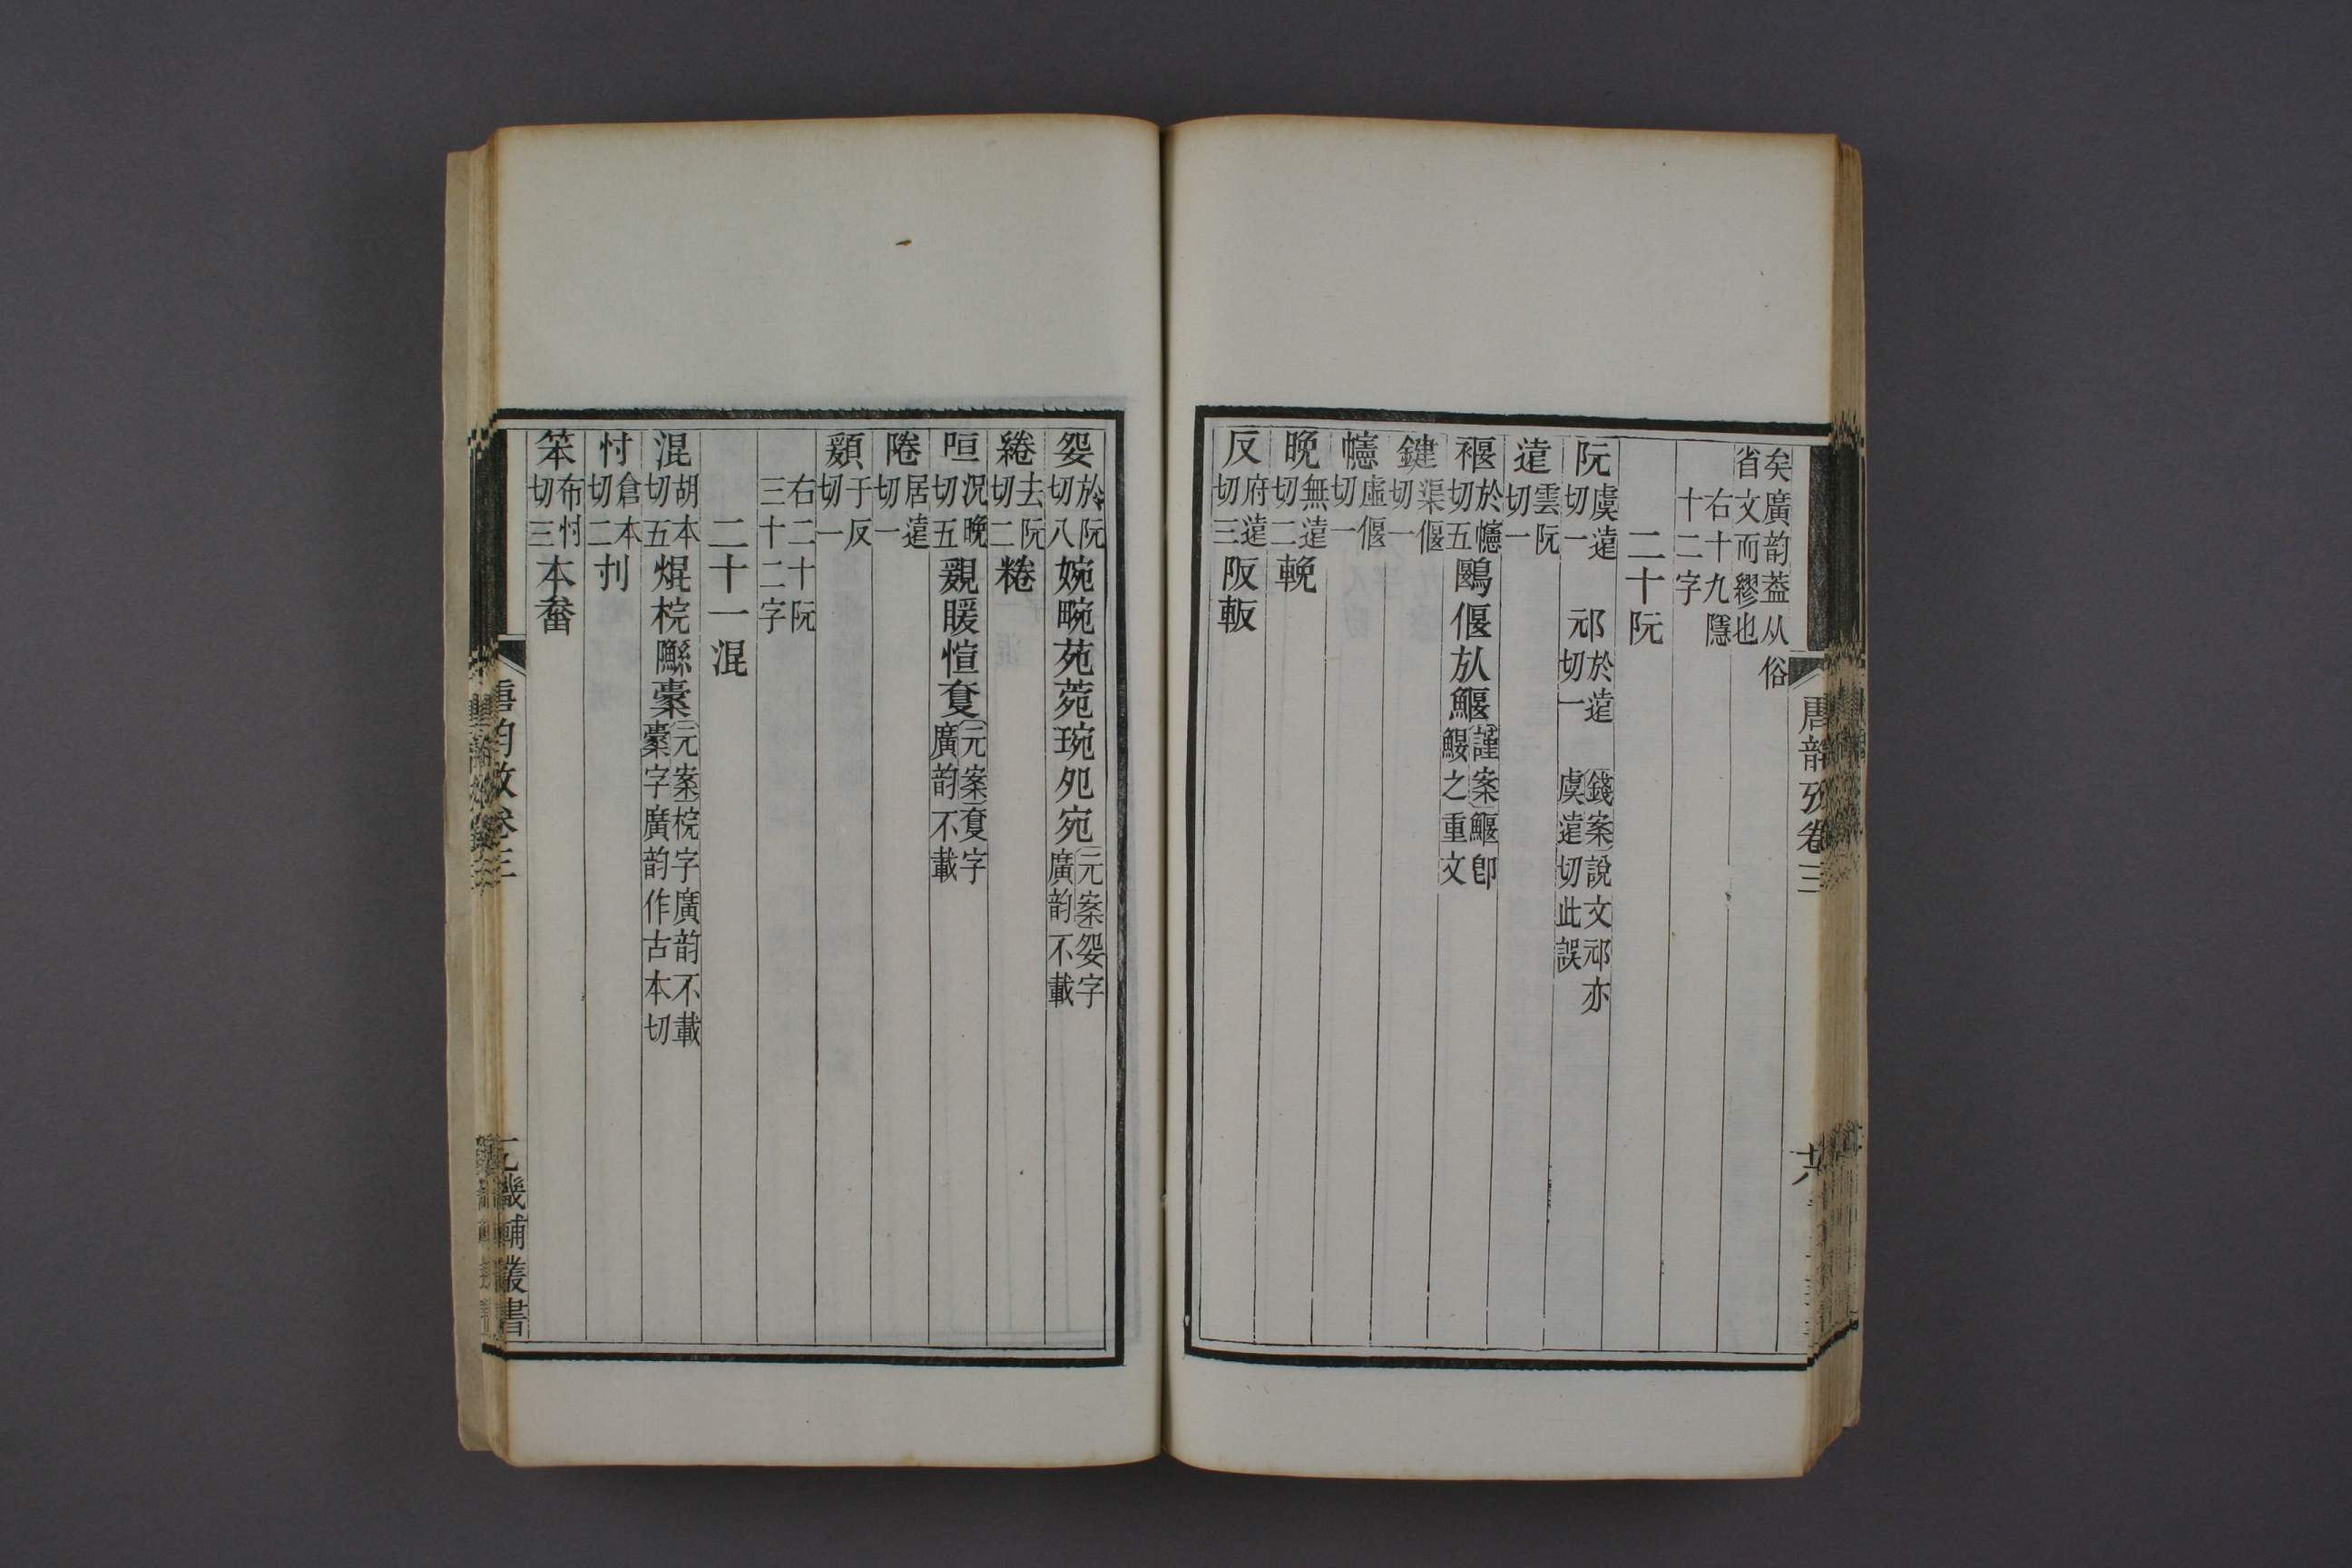 矣廣韵葢从俗省文而繆也
右十九隱十二字
二十阮
阮虞遠切一 邧於遠切一 錢案說文邧亦虞遠切此誤
遠雲阮切一
褗於幰切五鶠偃㫃鰋謹案鰋卽鰋之重文
鍵渠偃切一
幰虛偃切一
晚無遠切二輓
反府遠切三阪軓
唐韵攷卷三
婏於阮切八婉畹苑菀琬夗宛元案婏字廣韵不載
綣去阮切二䊎
咺況晚切五覣暖愃夐元案夐字廣韵不載
卷居遠切一
顐于反切一
右二十阮三十二字
二十一混
混胡本切五焜梡䲔橐元案梡字廣韵不載橐字廣韵作古本切
忖倉本切二刌
笨布忖切三本畚
唐韵攷卷三
畿輔叢書